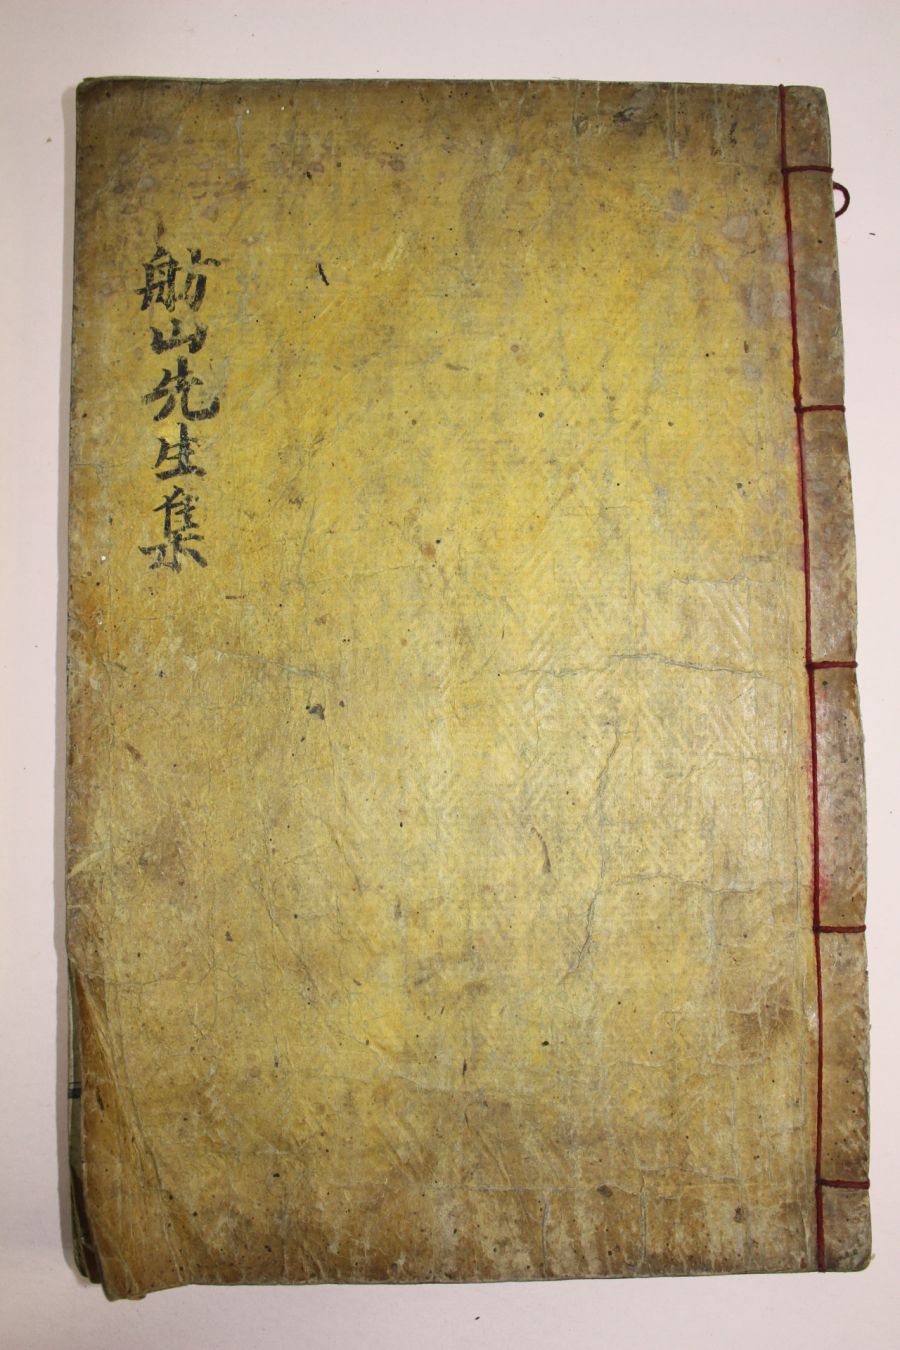 舫山先生集